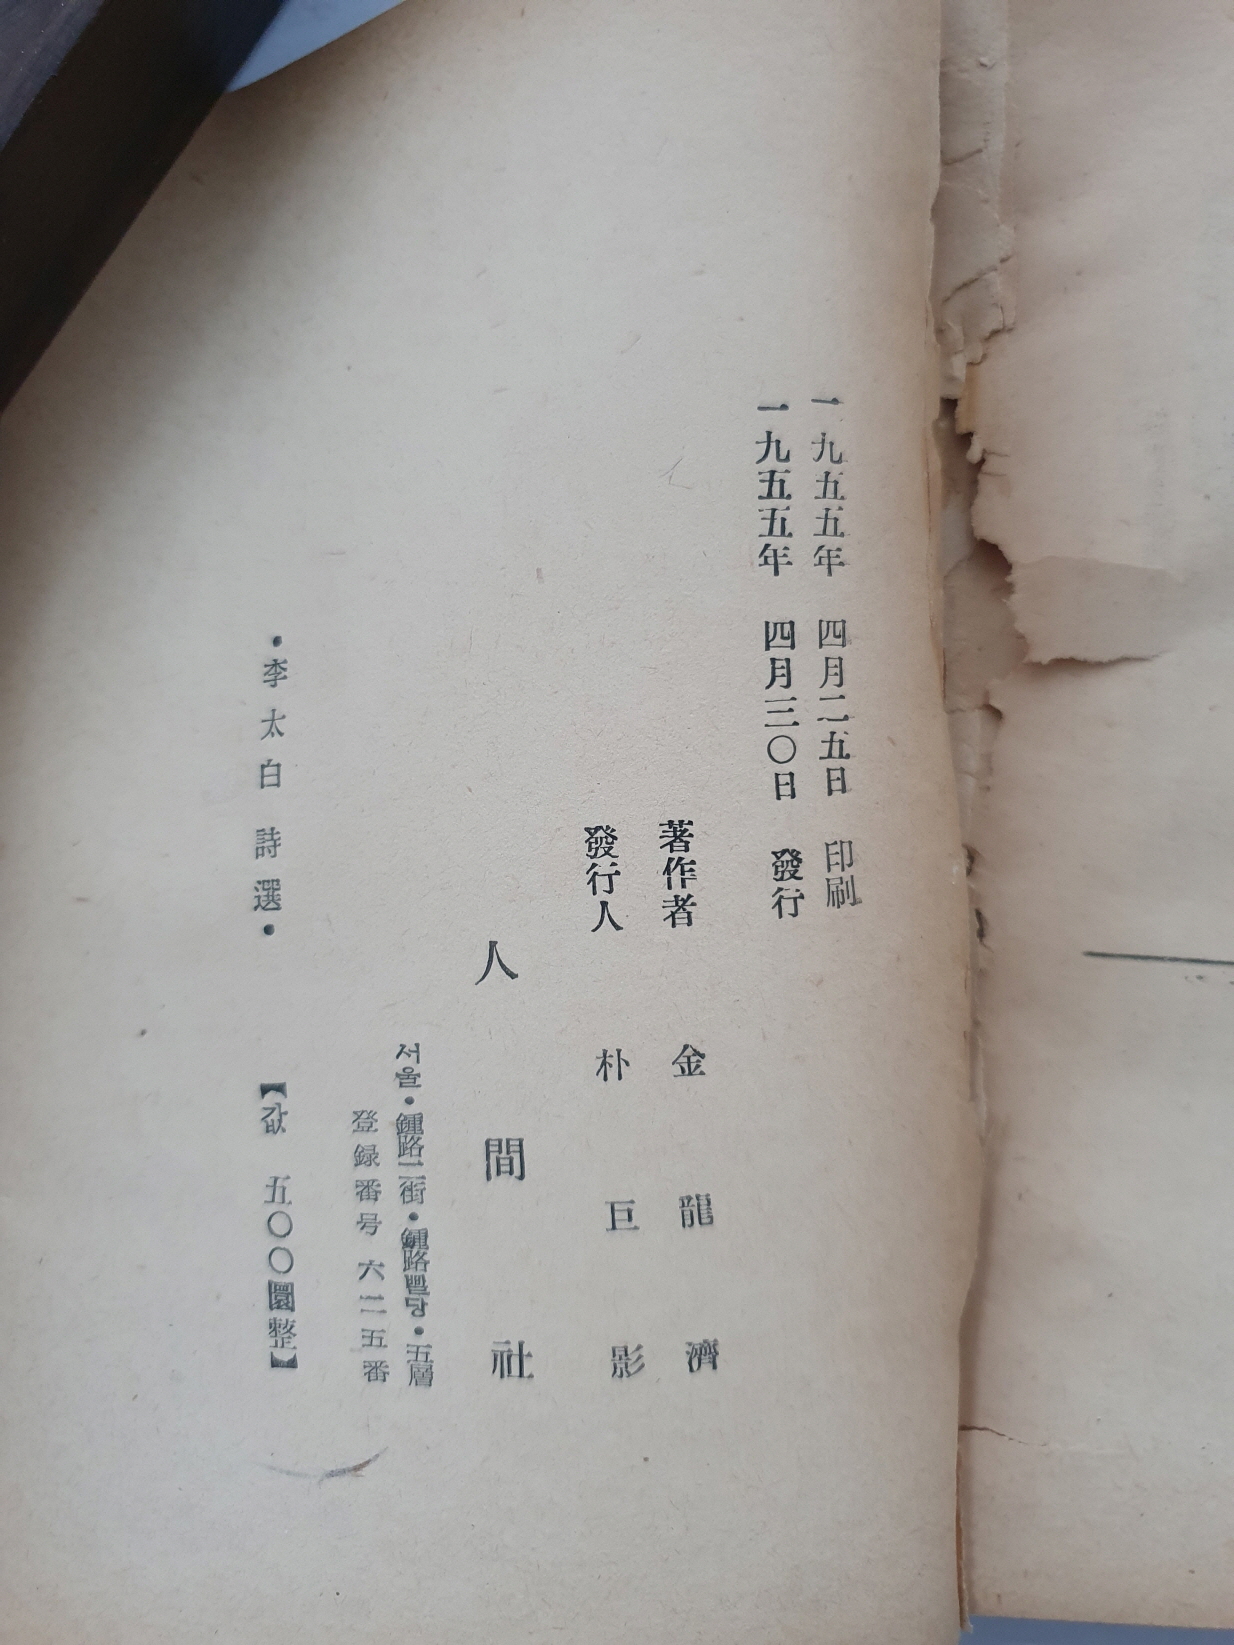 一九五五年 四月二五日 印刷
一九五五年 四月三〇日 發行
著作者 金龍濟
發行人 朴巨影
人間社
서울・鍾路二街・鍾路삘당・五層
登録番号 六二五番
・李太白 詩選・
【값 五〇〇圜整】